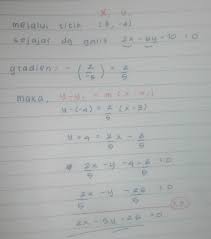 x₁ y₁
melalui titik (3, -4)
sejajar dg garis 2x - 5y - 10 = 0
gradien: -(2/-5) = 2/5
maka, y - y₁ = m (x - x₁)
y - (-4) = 2/5 (x - 3)
y + 4 = 2/5 x - 6/5
2x/5 - y - 4 - 6/5 = 0
2x/5 - y - 26/5 = 0
x 5
2x - 5y - 26 = 0